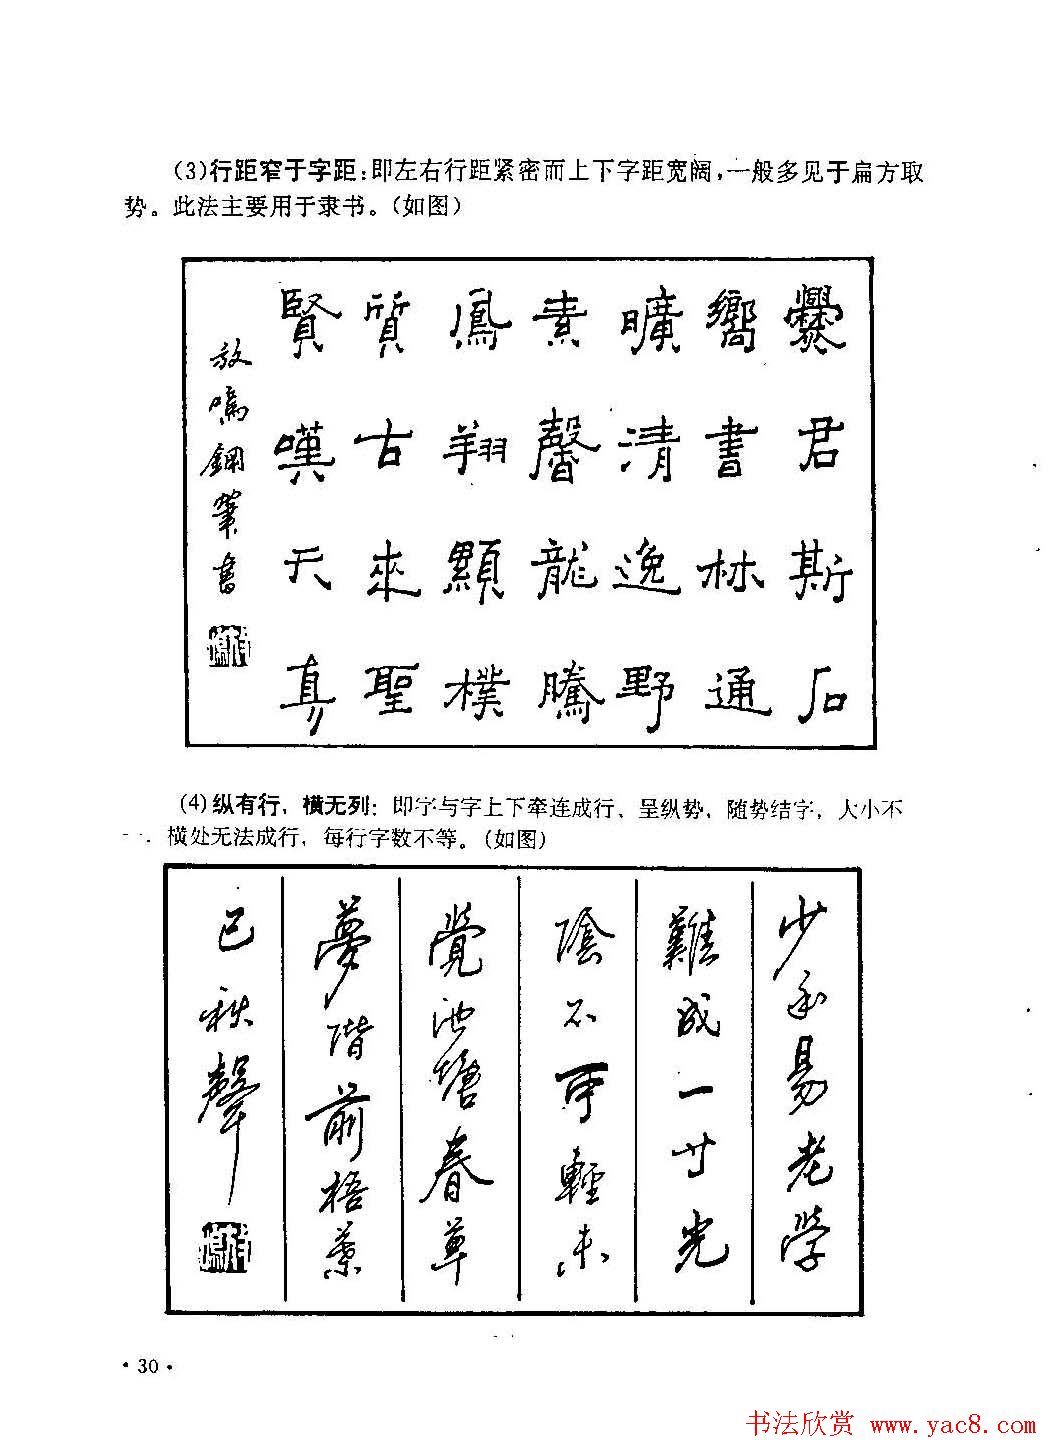 (3)行距窄于字距：即左右行距紧密而上下字距宽阔，一般多见于扁方取
势。此法主要用于隶书。（如图）
爨君斯石
嚮書林通
曠清逸野
素馨龍騰
鳳翔顯樸
質古來聖
賢嘆天真
放鳴鋼筆書
(4)纵有行，横无列：即字与字上下牵连成行，呈纵势，随势结字，大小不
一．横处无法成行，每行字数不等。（如图）
少年易老學
難成一寸光
陰不可輕未
覺池塘春草
夢階前梧葉
已秋聲
·30·
书法欣赏 www.yac8.com